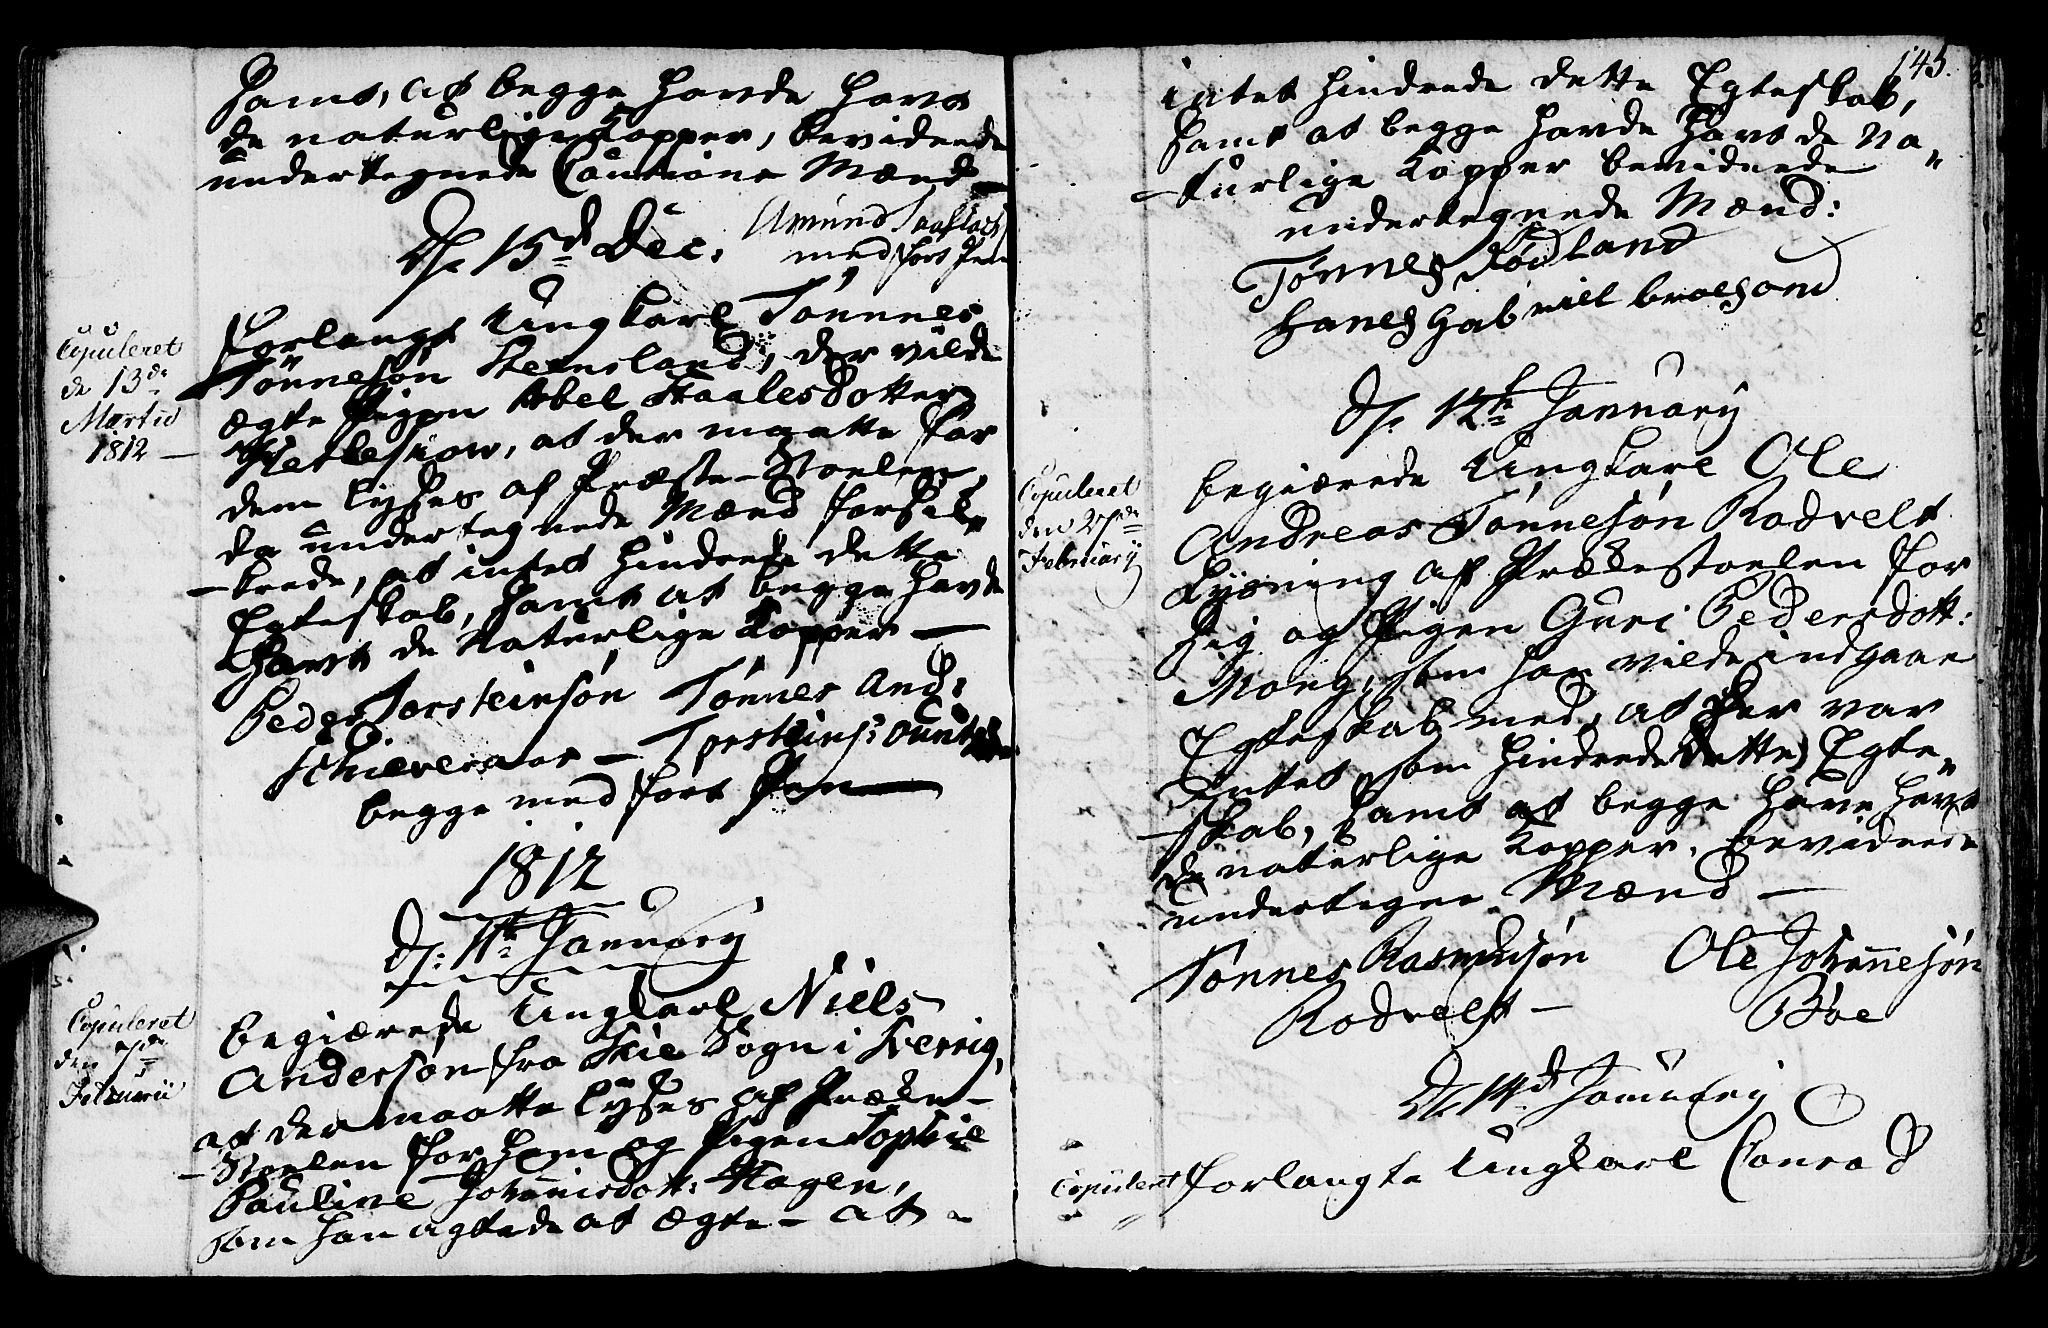 samt, at begge havde havt
de naturlige Kopper, bevidnede
undertegnede Cautions Mænd
Amund
med ført Pen
D. 15d Dec.
Copuleret
de 13de
Martii
1812
Forlangte Ungkarl Tønnes
Tønnesøn Steensland, der vilde
ægte Pigen Abel Staalesdotter
at der maatte for
dem lyses af Præste-Stoelen,
da undertegnede Mænd forsik-
-krede, at intet hindrede dette
Egteskab, samt at begge havde
havt de Naturlige Kopper
Peder Torsteinsøn Tønnes And:
Torsteins:
begge med ført Pen
1812
D: 11te January
Copuleret
den
Februarii
begiærede Ungkarl Niels
Andersøn fra Skie Sogn i Sverrig,
at der maatte lyses af Præke-
-Stoelen for ham og Pigen Sophie
Pauline Johannisdott: Hagen,
som han agtede at ægte - at
145.
intet hindrede dette Egteskab,
samt at begge havde havt de Na-
-turlige Kopper bevidnede
undertegnede Mænd:
Tønnes Rødland
Hanes Gabriell
D. 12te January
Copuleret
den
February
begiærede Ungkarl Ole
Andreas Tønnesøn Rodvelt
Lysning af Prækestoelen for
sig og Pigen Guri Pedersdott:
Mong, som han vilde indgaae
Egteskab med, at der var
Intet som hindrede dette Egte-
-skab, samt at begge have havt
de naturlige Kopper, bevidnede
undertegne Mænd
Tønnes Rasmusøn Ole Johannesøn
Rodvelt Bøe
D. 14d January
Copuleret forlangte Ungkarl Conrad